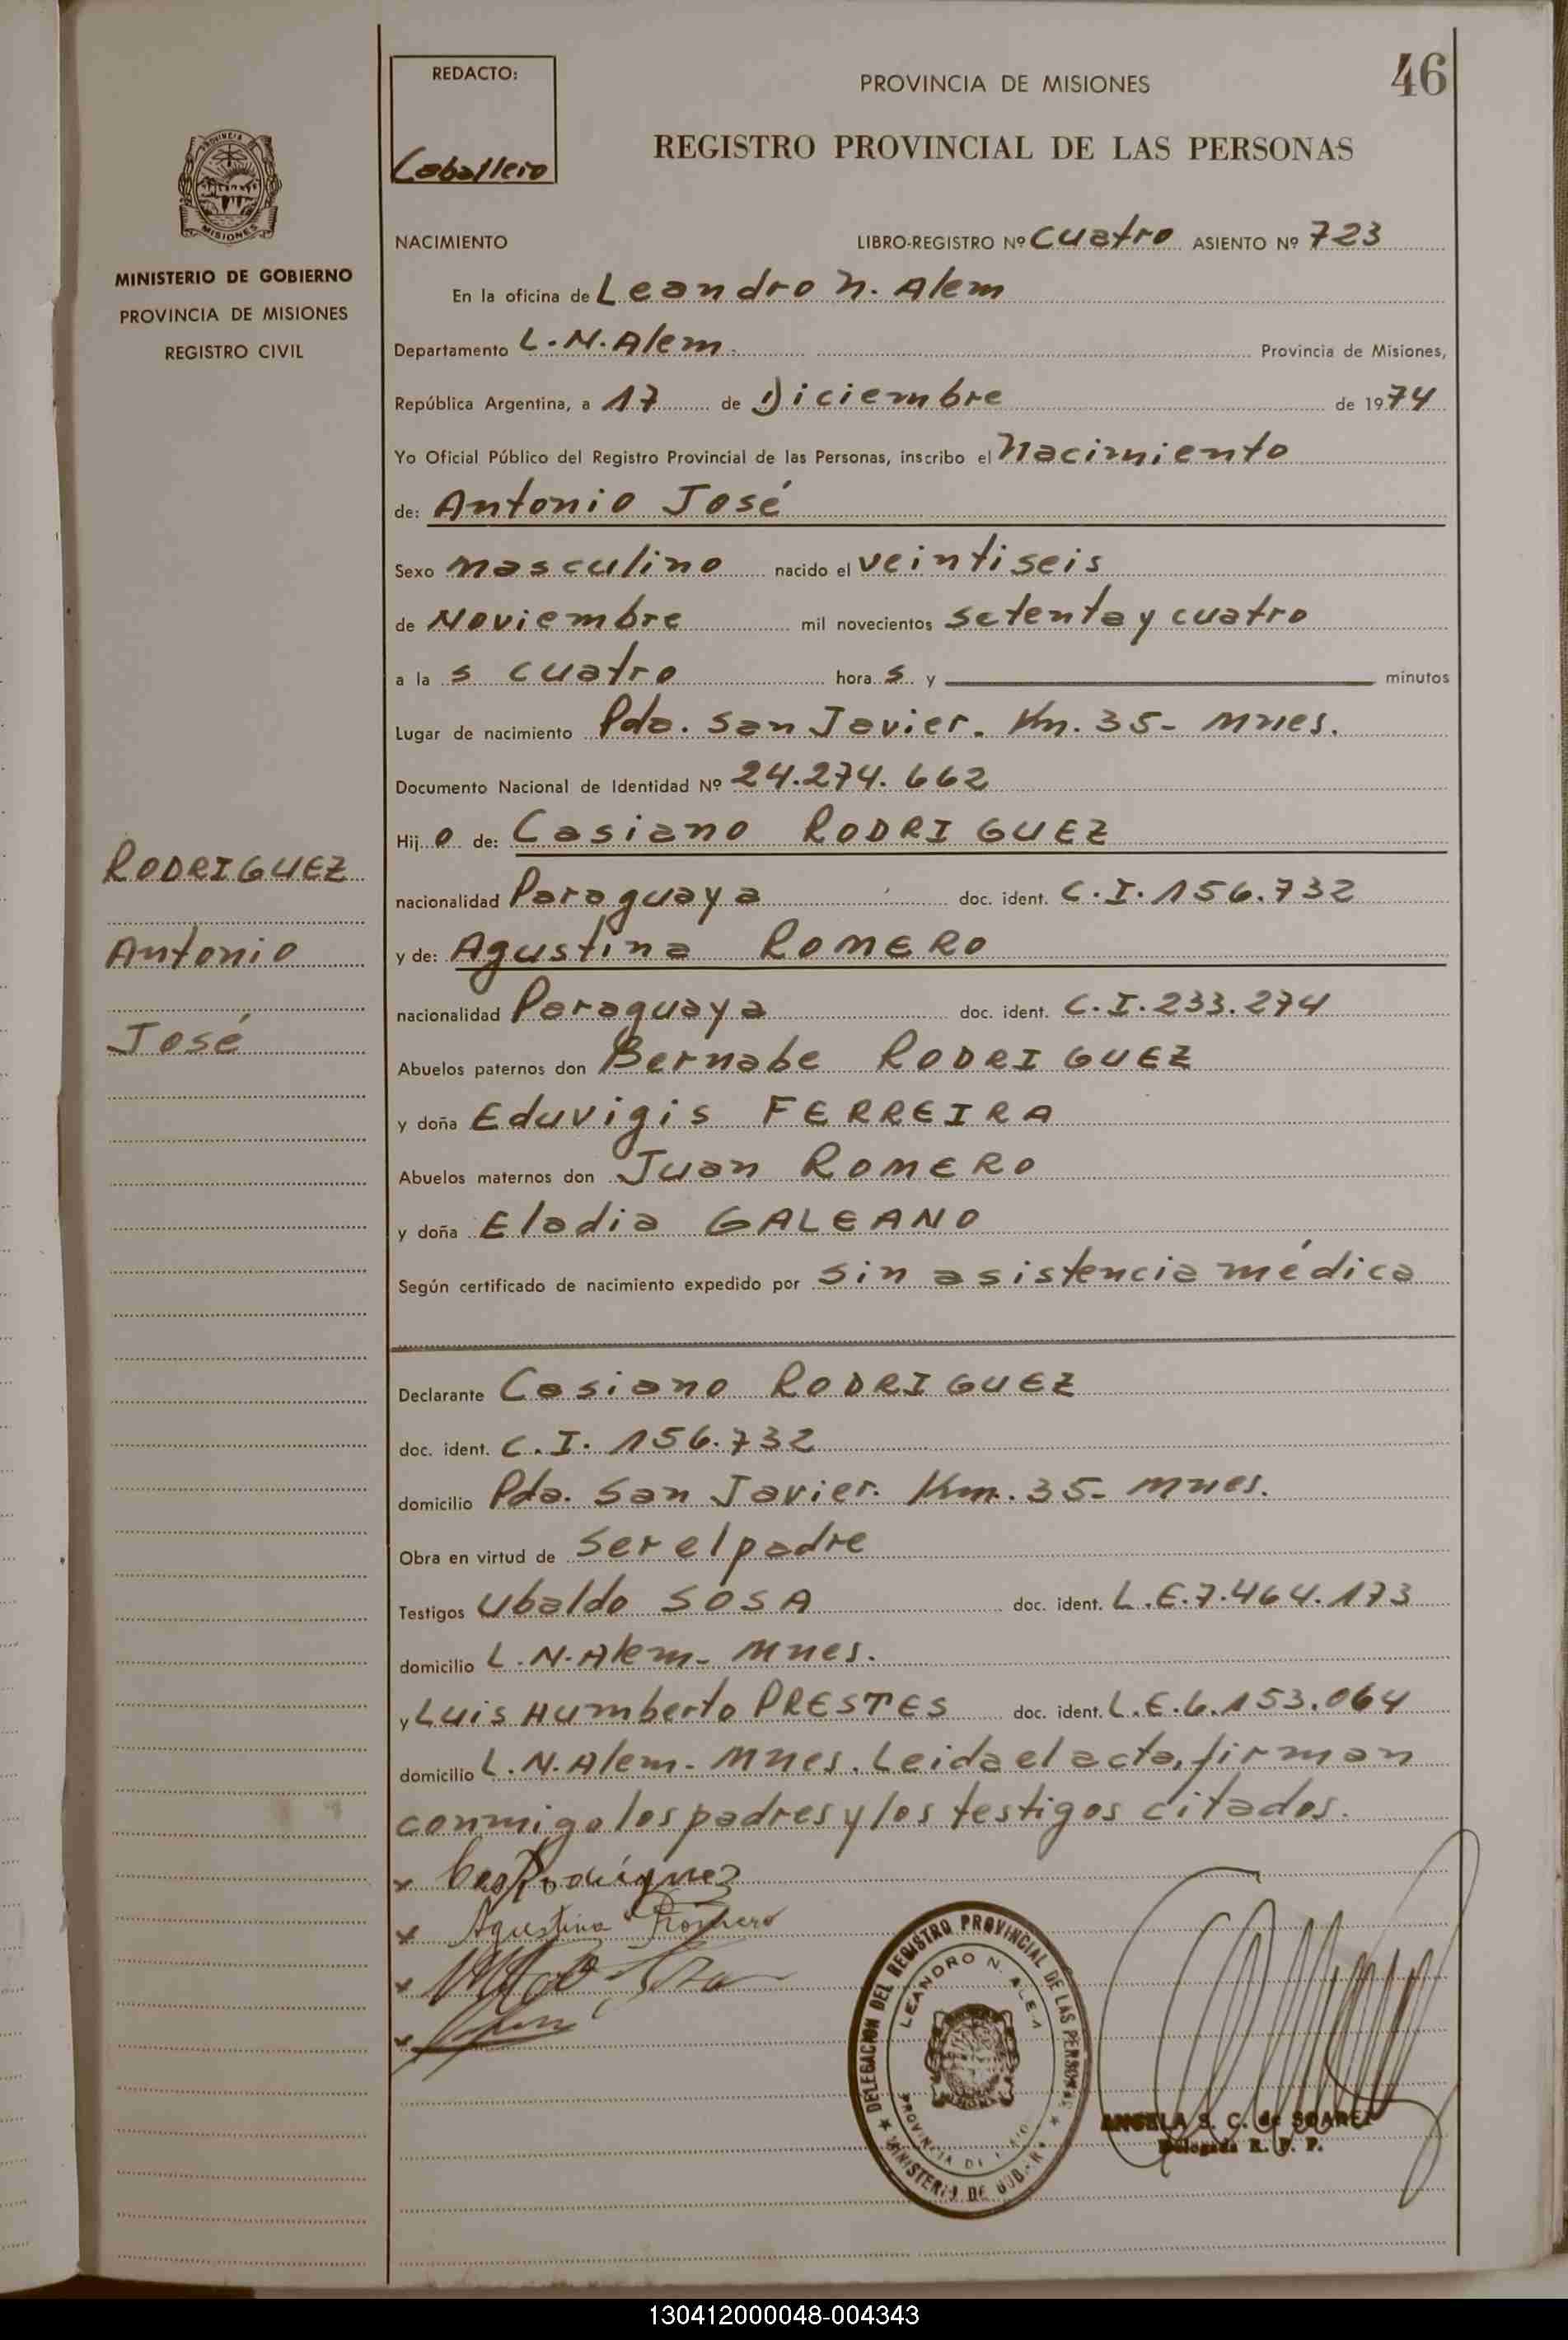 46
REDACTO:
Caballero
PROVINCIA DE MISIONES
REGISTRO PROVINCIAL DE LAS PERSONAS
PROVINCIA
MISIONES
MINISTERIO DE GOBIERNO
PROVINCIA DE MISIONES
REGISTRO CIVIL
NACIMIENTO LIBRO-REGISTRO Nº Cuatro ASIENTO Nº 723
En la oficina de Leandro N. Alem
Departamento L. N. Alem. Provincia de Misiones,
República Argentina, a 17 de Diciembre de 1974
Yo Oficial Público del Registro Provincial de las Personas, inscribo el Nacimiento
de: Antonio José
Sexo masculino nacido el veintiseis
de Noviembre mil novecientos setenta y cuatro
a la s cuatro hora s y minutos
Lugar de nacimiento Pda. San Javier. Km. 35- Mnes.
Documento Nacional de Identidad Nº 24.274.662
Hij o de: Casiano RODRIGUEZ
RODRIGUEZ
nacionalidad Paraguaya doc. ident. C.I. 156.732
Antonio
y de: Agustina ROMERO
nacionalidad Paraguaya doc. ident. C.I. 233.274
José
Abuelos paternos don Bernabe RODRIGUEZ
y doña Eduvigis FERREIRA
Abuelos maternos don Juan ROMERO
y doña Eladia GALEANO
Según certificado de nacimiento expedido por sin asistencia médica
Declarante Casiano RODRIGUEZ
doc. ident. C.I. 156.732
domicilio Pda. San Javier. Km. 35- Mnes.
Obra en virtud de ser el padre
Testigos Ubaldo SOSA doc. ident. L.E. 7.464.173
domicilio L. N. Alem- Mnes.
y Luis Humberto PRESTES doc. ident. L.E. 6.153.064
domicilio L. N. Alem- Mnes. Leida el acta, firman
conmigo los padres y los testigos citados.
x Cas Rodríguez
x Agustina Romero
x
x
DELEGACION DEL REGISTRO PROVINCIAL DE LAS PERSONAS
LEANDRO N. ALEM
MINISTERIO DE GOB.
ANGELA S. C. de SOAREZ
Delegada R. P. P.
130412000048-004343